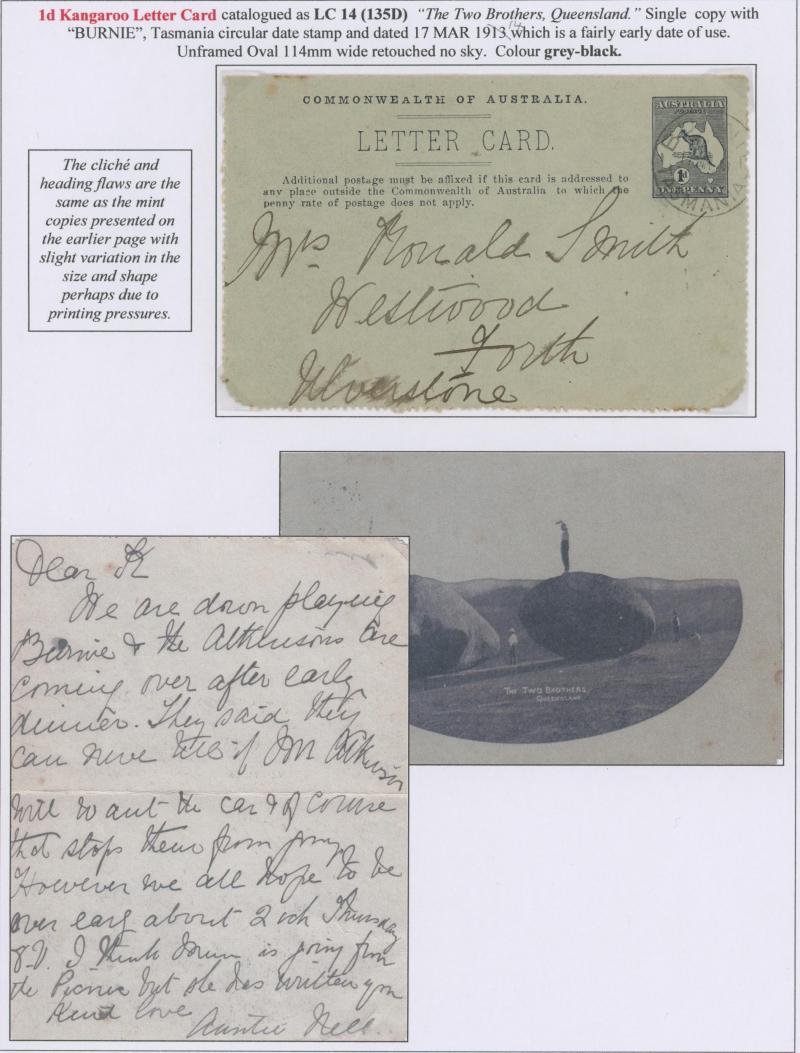 1d Kangaroo Letter Card catalogued as LC 14 (135D) "The Two Brothers, Queensland." Single copy with
"BURNIE", Tasmania circular date stamp and dated 17 MAR 1913, 14 which is a fairly early date of use.
Unframed Oval 114mm wide retouched no sky. Colour grey-black.
The cliché and
heading flaws are the
same as the mint
copies presented on
the earlier page with
slight variation in the
size and shape
perhaps due to
printing pressures.
COMMONWEALTH OF AUSTRALIA.
LETTER CARD.
Additional postage must be affixed if this card is addressed to
any place outside the Commonwealth of Australia to which the
penny rate of postage does not apply.
AUSTRALIA
POSTAGE
1d
ONE PENNY
MANIA
Mrs Ronald Smith
Westwood
Forth
Ulverstone
THE TWO BROTHERS,
QUEENSLAND.
Dear
We are down playing
Burnie & the Atkinsons are
coming over after early
dinner. They said they
can
will want the car & of course
that stops them from going
However we all hope to be
over early about 2 och Thursday
I think is going from
the Picnic but she has written you
Kind love
Auntie Nell.